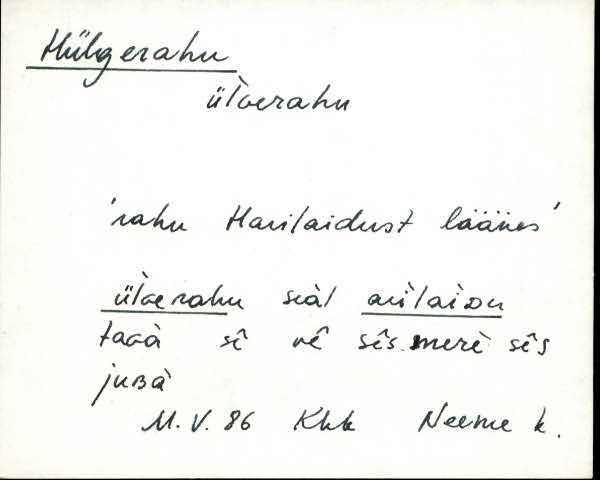 Hülgerahu
ül̀Gerahu
'rahu Harilaidust läänes'
ül̀Gerahu sial̀ aril̀aiDu
taGà sî vê sês merè sês
juBà
M.V. 86 Khk Neeme k.